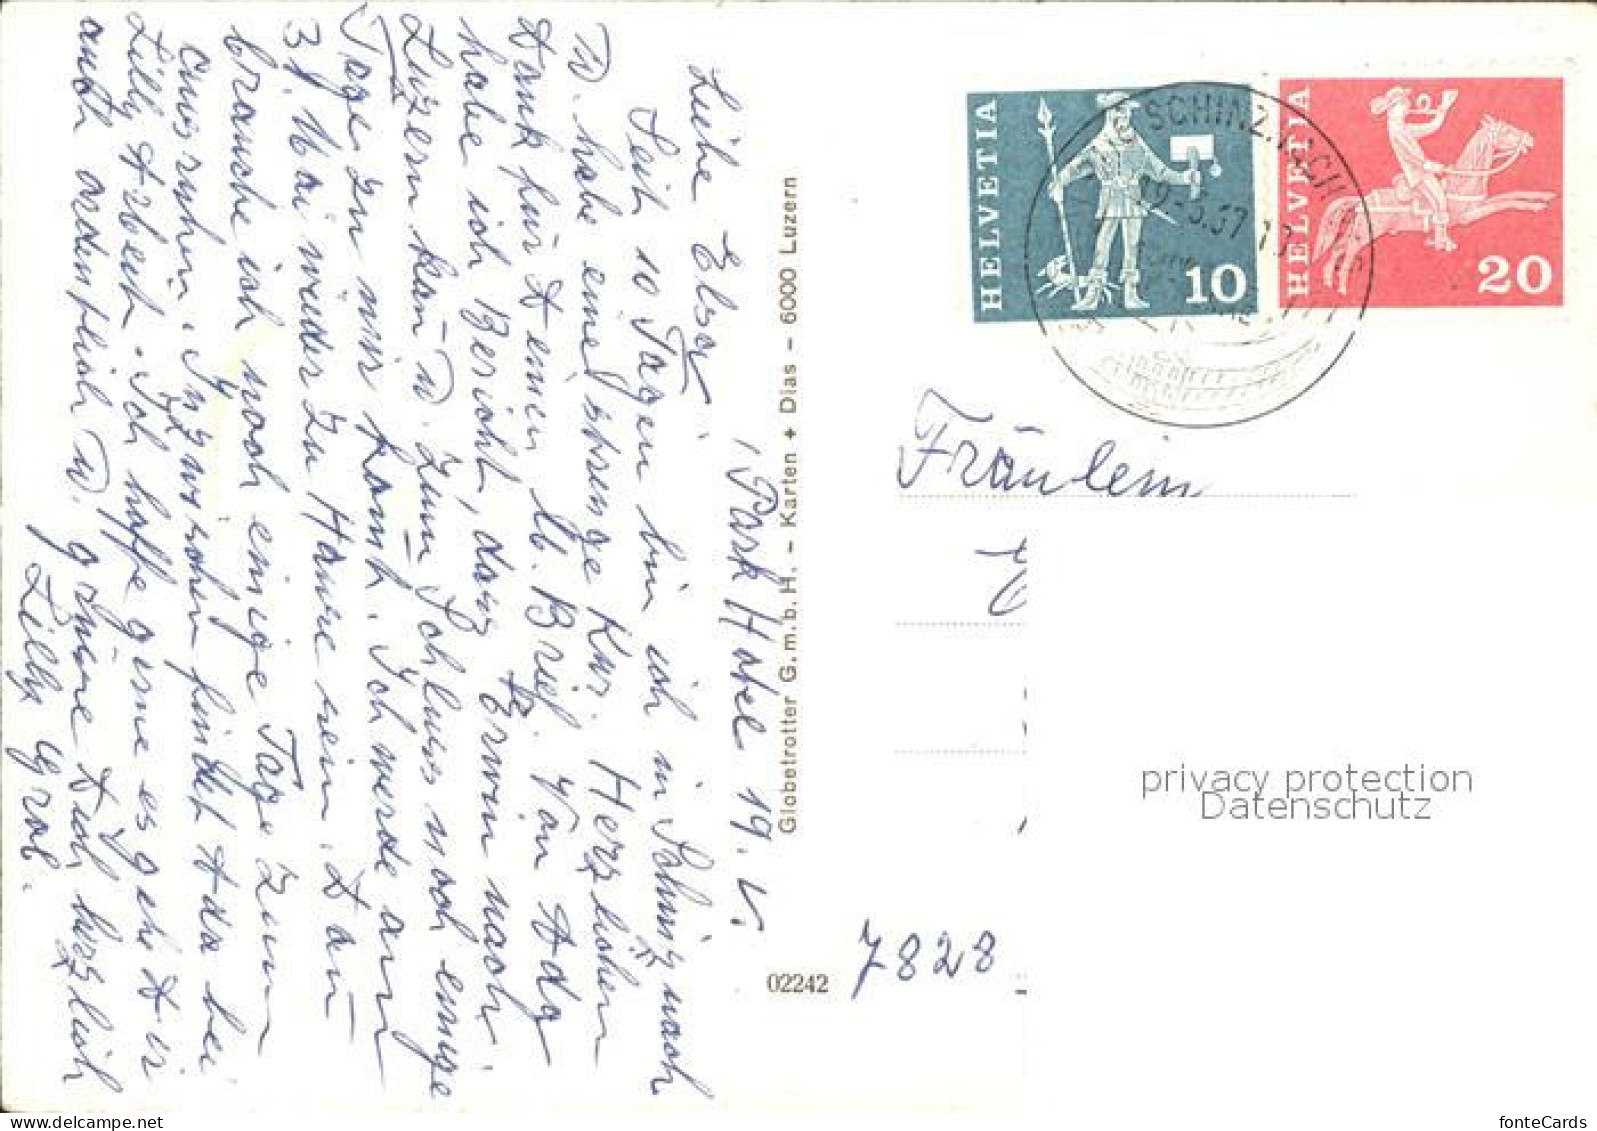 Park Hotel 19. V.
Liebe Elsa,
Seit 10 Tagen bin ich in Schinznach
u. habe eine strenge Kur. Herzlichen
Dank für Deinen lb. Brief. Von Ada
habe ich Bericht, dass Erwin nach
Luzern kam u. zum Schluss noch einige
Tage zu mir kommt. Ich werde am
31. Mai wieder zu Hause sein. Dann
brauche ich noch einige Tage zum
ausruhen. Inzwischen findet Ada bei
Lilly Arbeit. Ich hoffe gerne es geht Dir
auch ordentlich u. grüsse Dich herzlich
Lilly
Globetrotter G.m.b.H. – Karten + Dias – 6000 Luzern
02242
HELVETIA
10
HELVETIA
20
SCHINZNACH
Fräulein
7828
privacy protection
Datenschutz
fonteCards